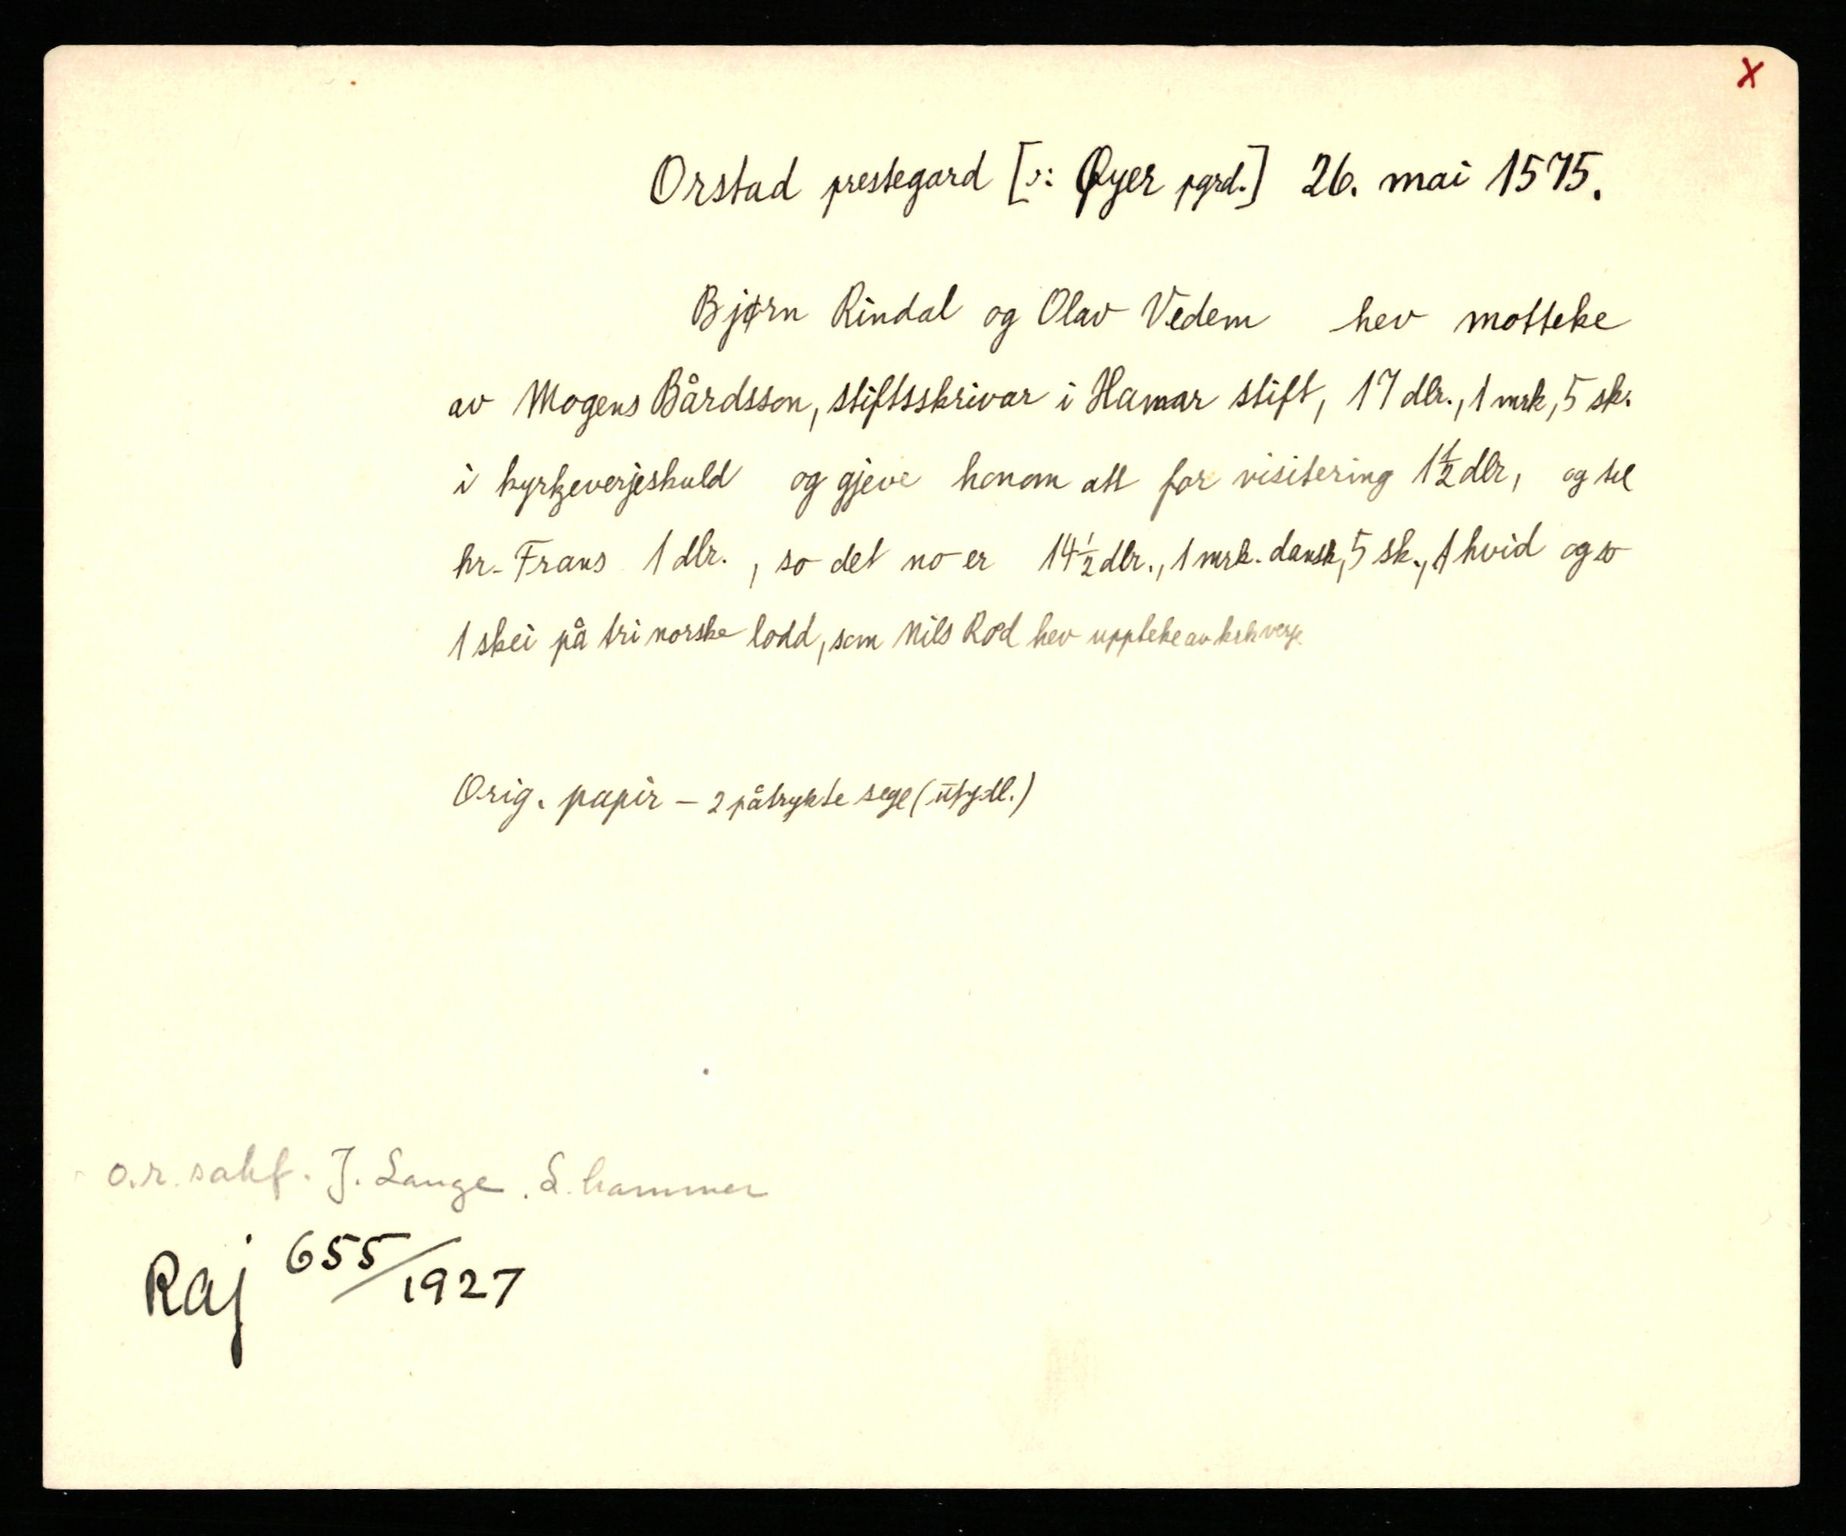 x
Orstad prestegard [ɔ: Øyer pgrd.] 26. mai 1575.
Bjørn Rindal og Olav Vedem hev motteke
av Mogens Bårdsson, stiftsskrivar i Hamar stift, 17 dlr., 1 mrk, 5 sk.
i kyrkjeverjeskuld og gjeve honom att for visitering 1½ dlr, og til
hr. Frans 1 dlr., so det no er 14½ dlr., 1 mrk. dansk, 5 sk., 1 hvid og so
1 skei på tri norske lodd, som Nils Rod hev uppteke av
Orig. papir – 2 påtrykte segl (utydl.)
o.r. sakf. J. Lange. L.hammer
Raj 655/1927